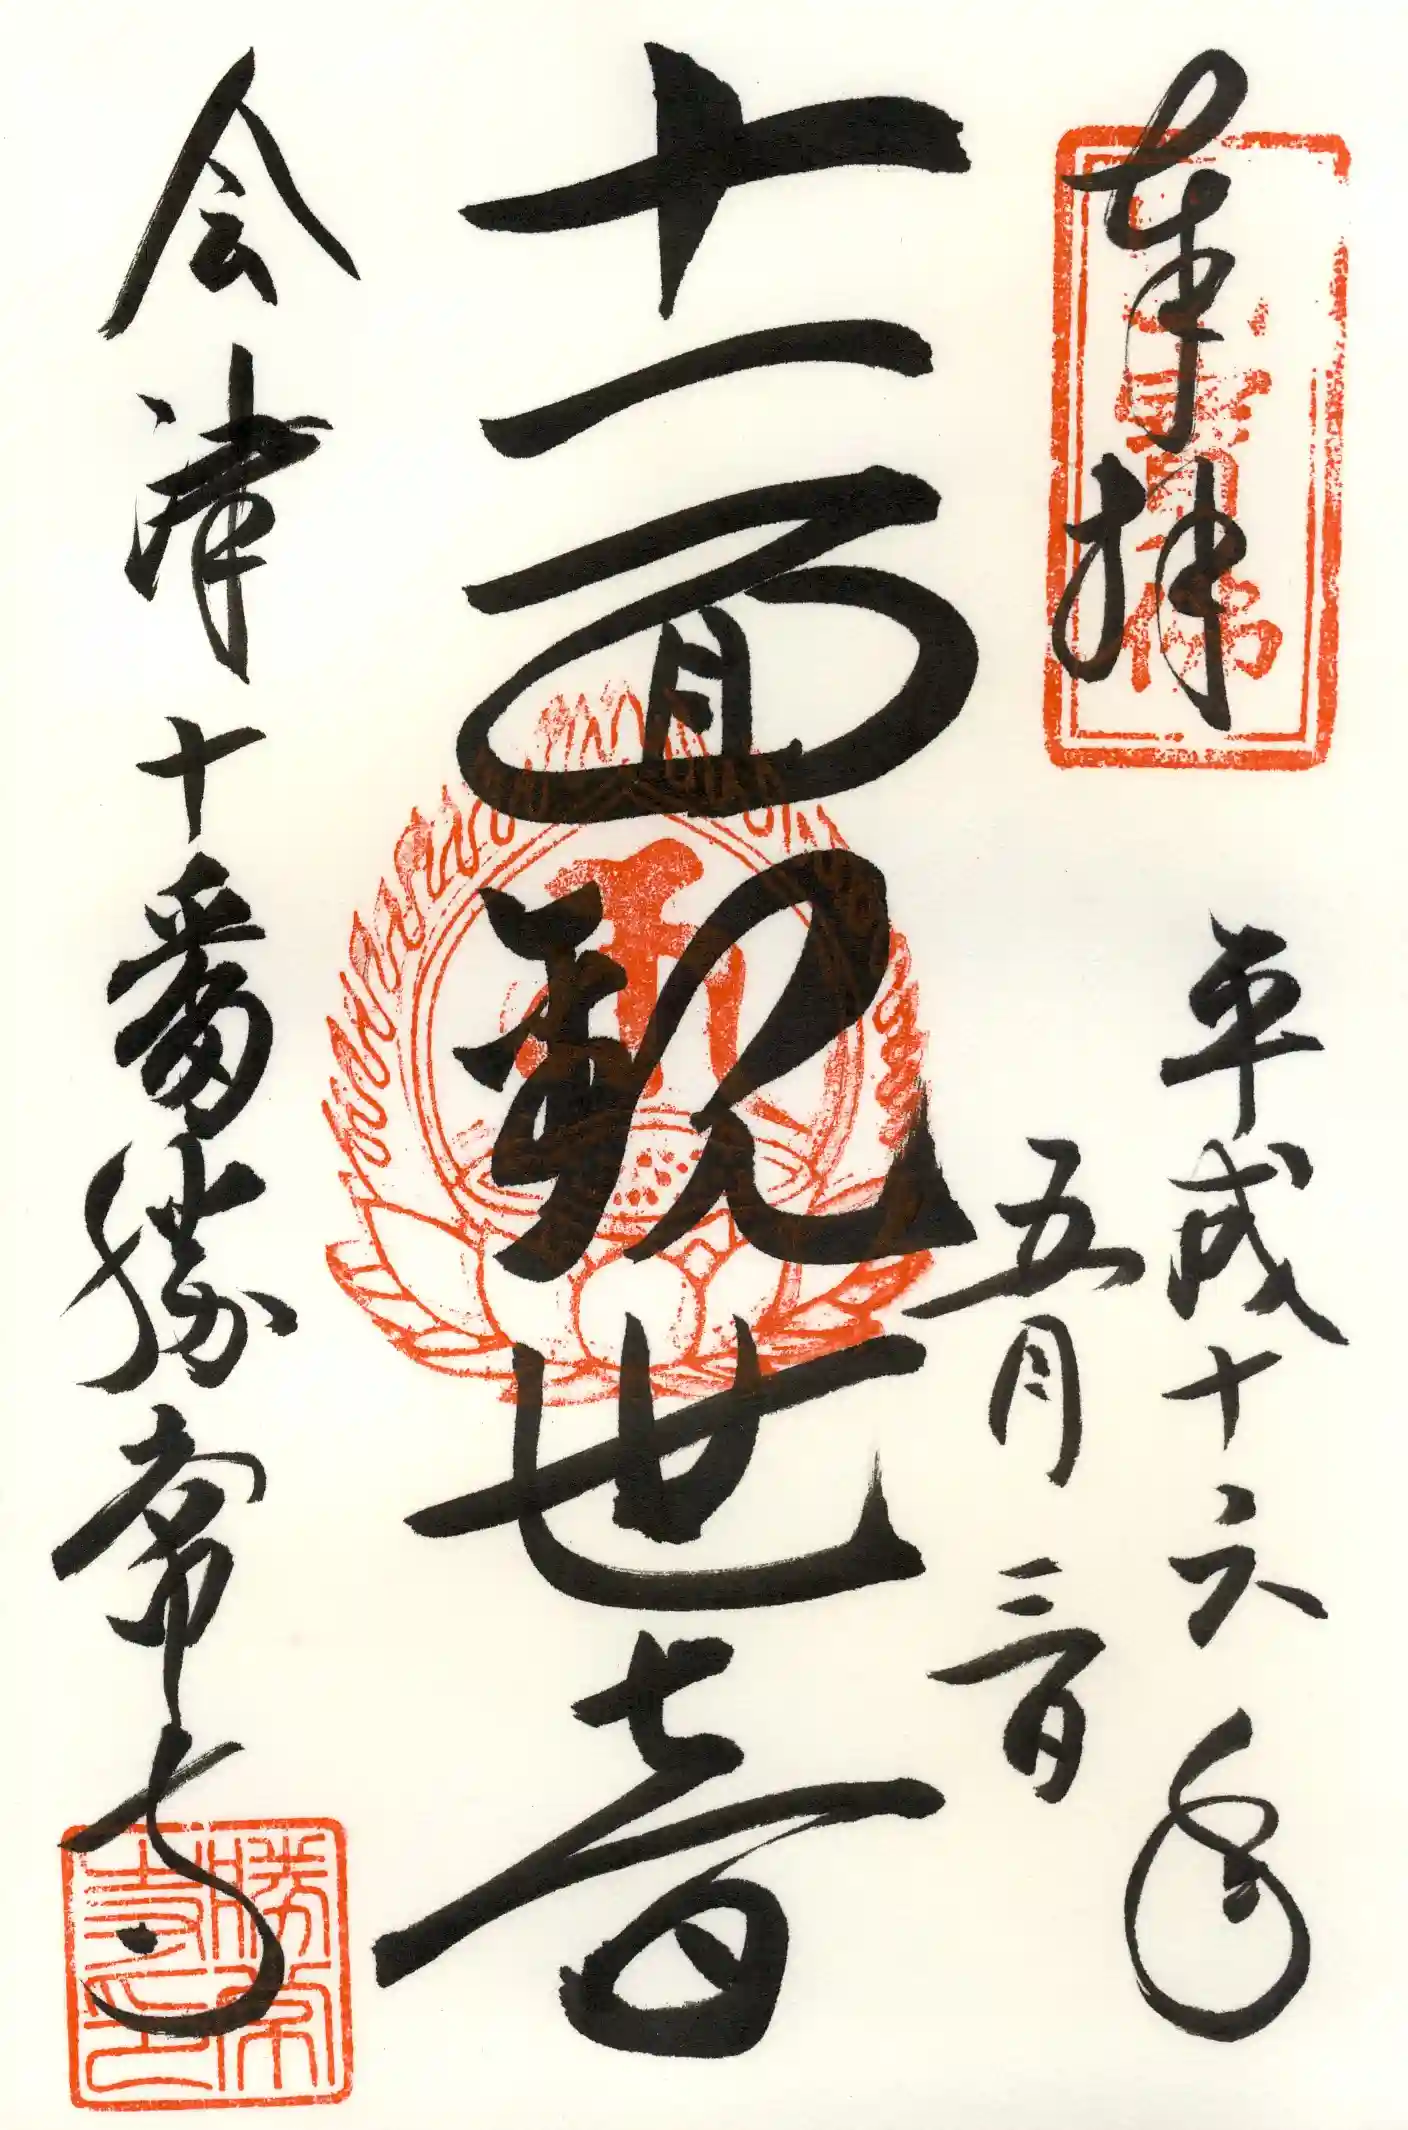 奉拝
平成十六年
五月三日
十一面観世音
会津十番勝常寺
勝常寺印